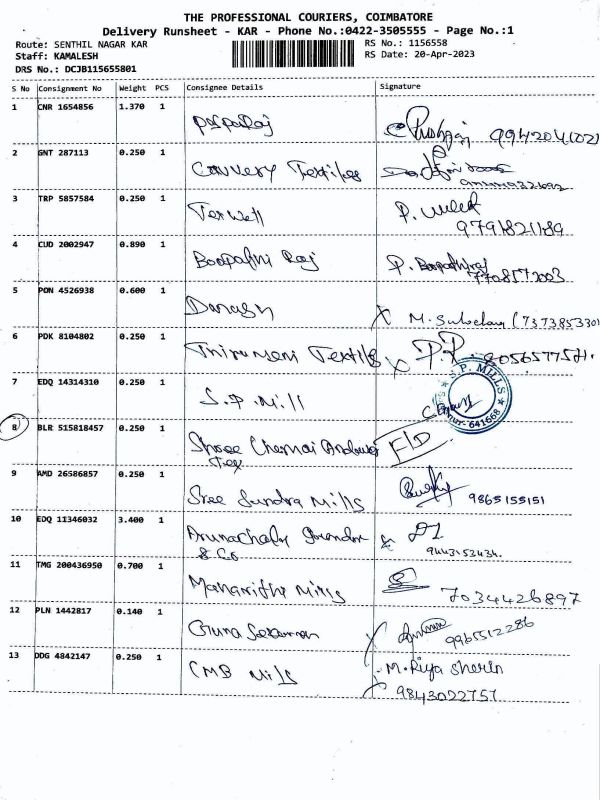 THE PROFESSIONAL COURIERS, COIMBATORE
Delivery Runsheet - KAR - Phone No.:0422-3505555 - Page No.:1
Route: SENTHIL NAGAR KAR RS No.: 1156558
Staff: KAMALESH RS Date: 20-Apr-2023
DRS No.: DCJB115655801
S No Consignment No Weight PCS Consignee Details Signature
1 CNR 1654856 1.370 1
2 GNT 287113 0.250 1 Cauvery Textiles
3 TRP 5857584 0.250 1 Texwell P.
9791821189
4 CUD 2002947 0.890 1 Boopathi Raj P. Boopathiraj
7708572003
5 PON 4526938 0.600 1 Danash M. (7373853301
6 PDK 8104802 0.250 1 Thirumani Textiles P.P.
7 EDQ 14314310 0.250 1 S.P. Mill S.P. MILLS
641668
8 BLR 515818457 0.250 1 Shree Chennai Andavar F/D
Tex
9 AMD 26586857 0.250 1 Sree Sundra Mills 9865155151
10 EDQ 11346032 3.400 1
& Co 9443153434.
11 TMG 200436950 0.700 1 Mills 7034426897
12 PLN 1442817 0.140 1 Guna 9965512286
13 DDG 4842147 0.250 1 CMB Mills M. Riya Sherin
9843022757